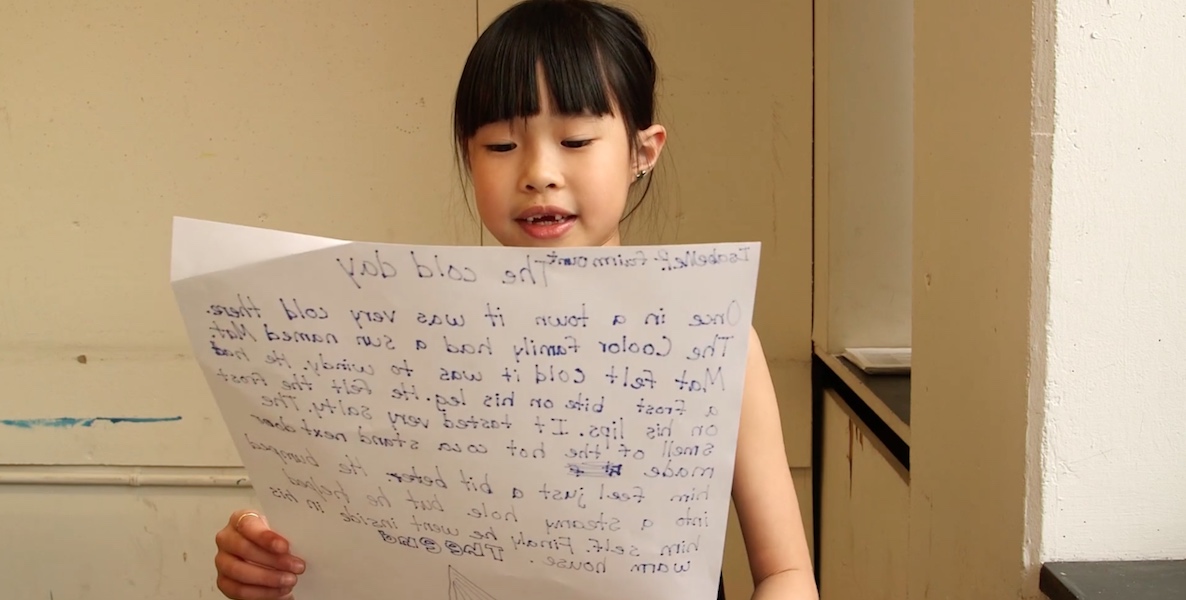 Isabelle P. Fairmount
The cold day
Once in a town it was very cold there.
The Coolor family had a sun named Mat.
Mat felt cold it was to windy. He had
a frost bite on his leg. He felt the frost
on his lips. It tasted very salty. The
smell of the hot coca stand next door
made
him feel just a bit beter. He bumped
into a steamy hole but he helped
him self. Finaly he went inside in his
warm house. The end